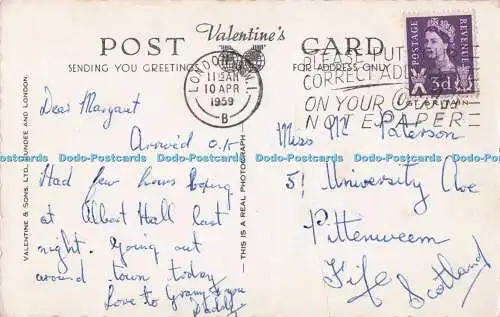 Valentine's
POST CARD
SENDING YOU GREETINGS
FOR ADDRESS ONLY
LONDON W.1.
11 15 AM
10 APR
1959
B
PLEASE PUT
CORRECT ADDRESS
ON YOUR
NOTEPAPER
POSTAGE REVENUE
3d
VALENTINE & SONS, LTD., DUNDEE AND LONDON.
THIS IS A REAL PHOTOGRAPH
Dear Margaret
Arrived O.K
Had few hours Boxing
at Albert Hall last
night. Going out
around town today
Love to Granny & you
Daddy
Miss M Paterson
51 University Ave
Pittenweem
Fife
Scotland
Dodo-Postcards Dodo-Postcards Dodo-Postcards Dodo-Postcards Dodo-Postcards Dodo-Postcards